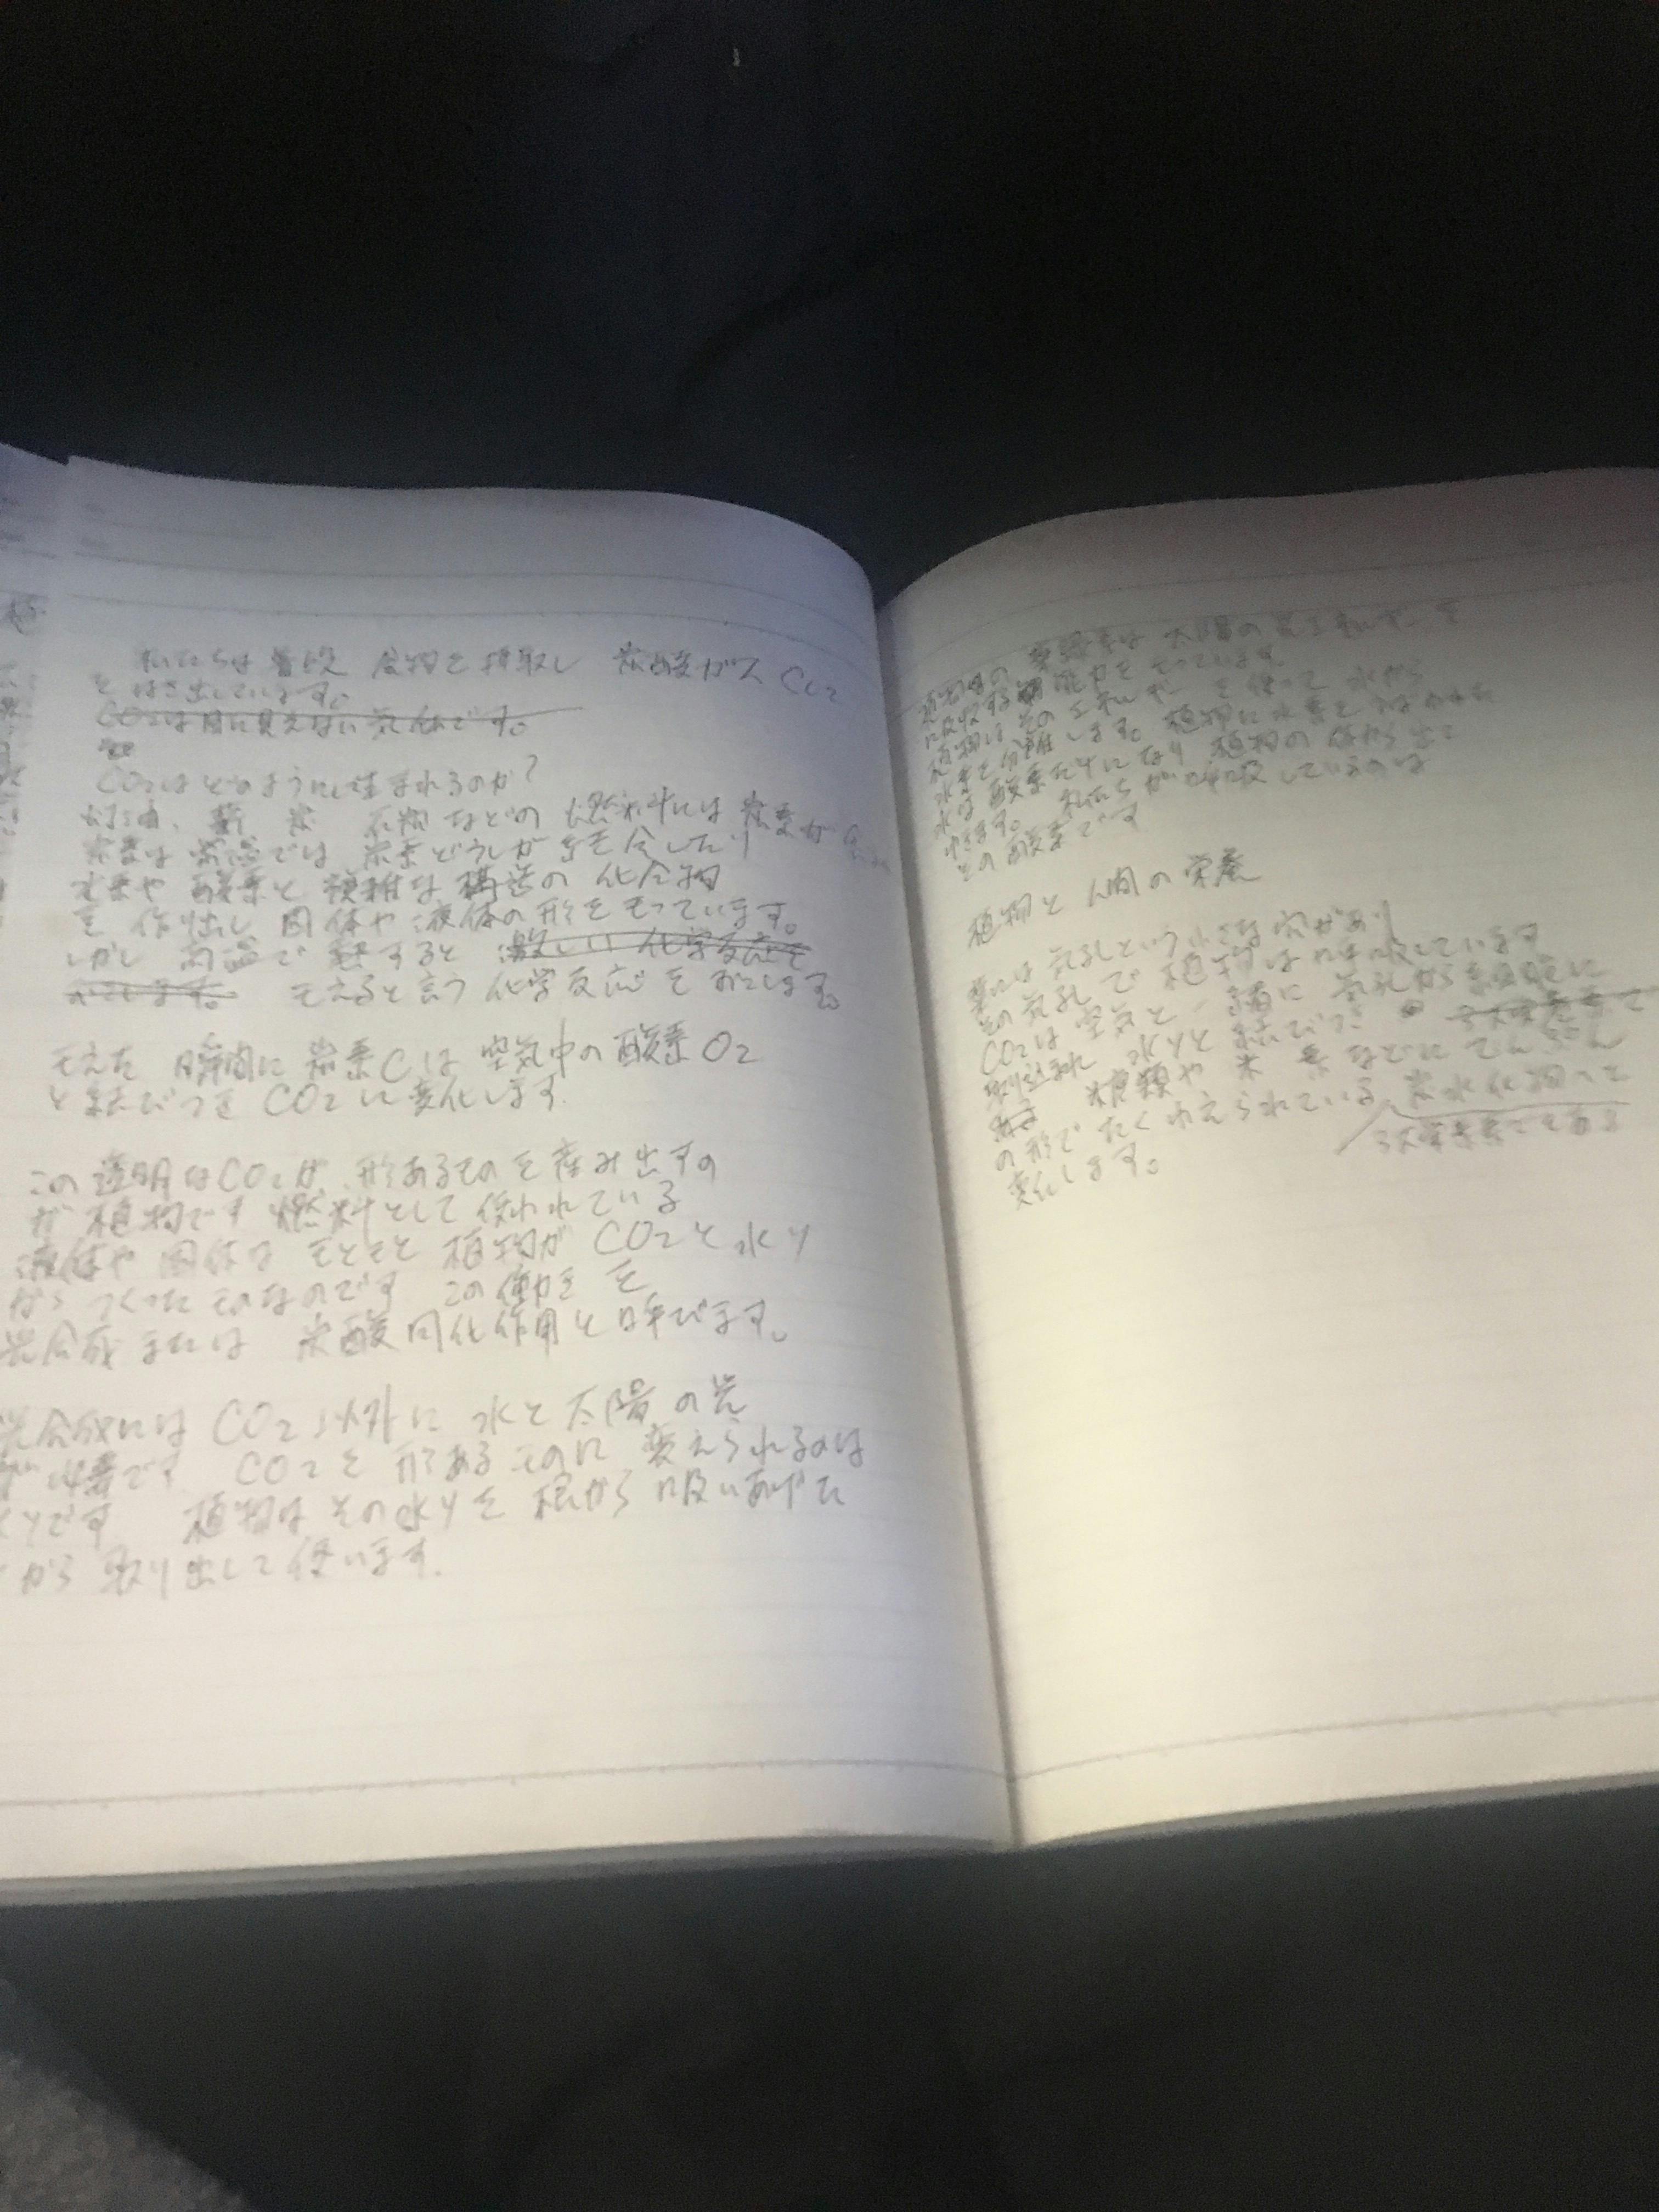 私たちは普段 食物を摂取し 炭酸ガス CO2
をはき出しています。
CO2は目に見えない気体です。
CO2はどのようにして生まれるのか?
灯油、薪 炭 石炭などの燃料には炭素が
炭素は常温では炭素どうしが結合したり
水素や酸素と複雑な構造の化合物
を作り出し 固体や液体の形をもっています。
しかし高温で熱すると 激しい化学反応を
おこします。 もえると言う化学反応をおこします。
もえた瞬間に炭素Cは空気中の酸素O2
と結びつき CO2に変化します。
この透明なCO2が 形あるものを産み出すの
が植物です 燃料として使われている
液体や固体は もともと植物が CO2と水
から つくったものなのです この働きを
光合成または 炭酸同化作用と呼びます。
光合成には CO2以外に 水と太陽の光
が必要です CO2を形あるものに変えられるのは
です 植物は その水 を 根から吸いあげて
から取り出して使います。
植物の葉緑素は太陽の光エネルギーを
吸収する能力をもっています。
植物はそのエネルギーを使って水から
水素を分離します。植物に水素をうばわれた
水は酸素だけになり 植物の体から出て
ゆきます。 私たちが呼吸しているのは
その酸素です
植物と人間の栄養
葉には気孔という小さな穴があり
その気孔で植物は呼吸しています
CO2は空気と一緒に気孔から細胞に
取り込まれ 水 と結びつき
糖類や 米 麦などにでんぷん
の形でたくわえられている炭水化物へと
変化します。